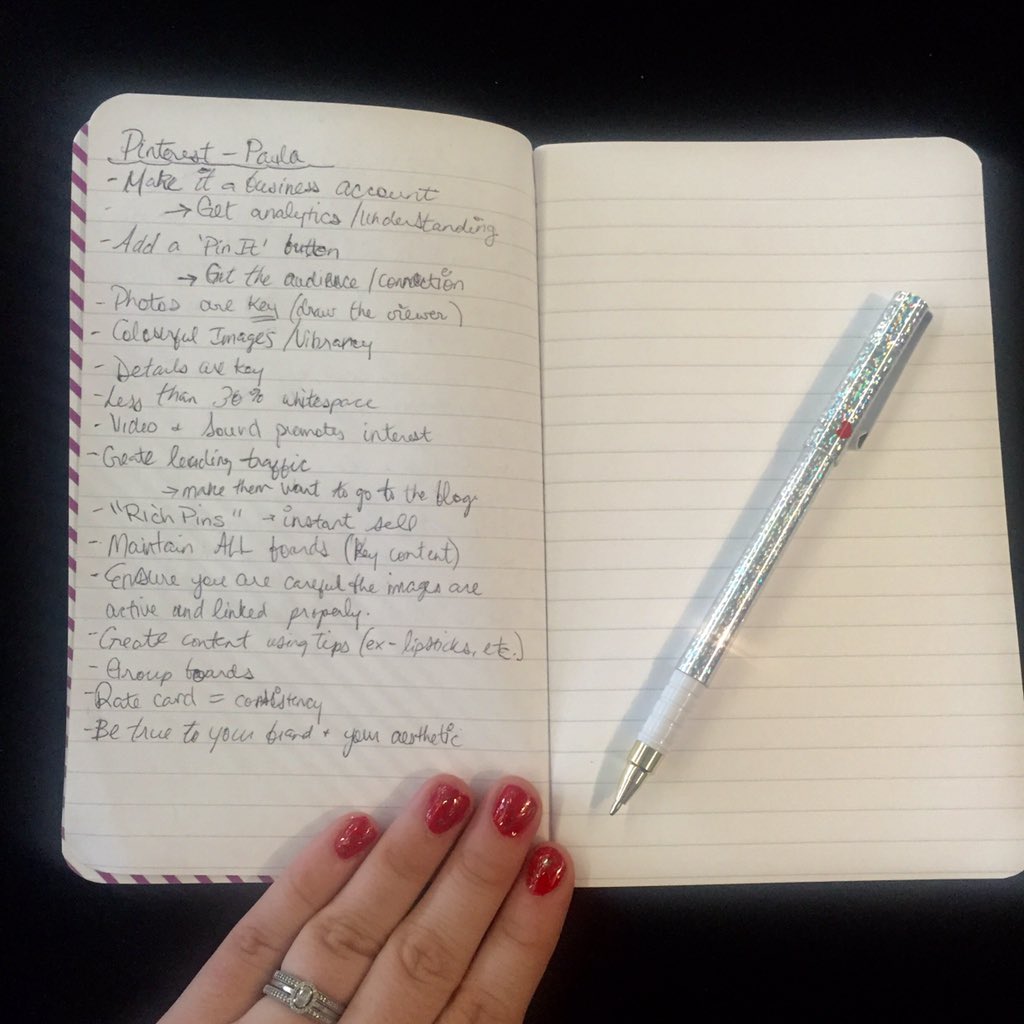 Pinterest - Paula
- Make it a business account
→ Get analytics / Understanding
- Add a 'Pin It' button
→ Get the audience / connection
- Photos are key (draw the viewer)
- Colourful Images / Vibrancy
- Details are key
- Less than 30% whitespace
- Video + Sound promotes interest
- Create leading traffic
→ make them want to go to the blog
- "Rich Pins" → instant sell
- Maintain ALL boards (key content)
- Ensure you are careful the images are
active and linked properly.
- Create content using tips (ex - lipsticks, etc.)
- Group boards
- Rate card = consistency
- Be true to your brand + your aesthetic